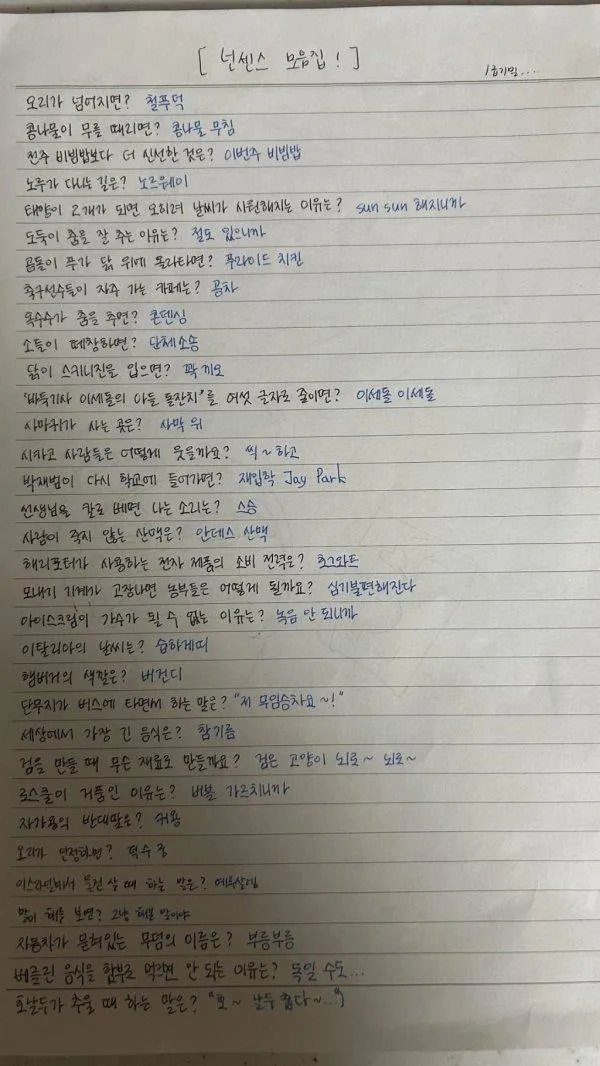 [ 넌센스 모음집! ]
1급기밀....
오리가 넘어지면? 철푸덕
콩나물이 무를 때리면? 콩나물 무침
전주 비빔밥보다 더 신선한 것은? 이번주 비빔밥
노루가 다니는 길은? 노르웨이
태양이 2개가 되면 오히려 날씨가 시원해지는 이유는? sun sun 해지니까
도둑이 춤을 잘 추는 이유는? 절도 있으니까
곰돌이 푸가 닭 위에 올라타면? 푸라이드 치킨
축구선수들이 자주 가는 카페는? 공차
옥수수가 춤을 추면? 콘덴싱
소들이 떼창하면? 단체소송
닭이 스키니진을 입으면? 꽉 끼오
'바둑기사 이세돌의 아들 돌잔치'를 여섯 글자로 줄이면? 이세돌 이세돌
사마귀가 사는 곳은? 사막 위
시카고 사람들은 어떻게 웃을까요? 씩~하고
박재범이 다시 학교에 들어가면? 재입학 Jay Park
선생님을 칼로 베면 나는 소리는? 스승
사람이 죽지 않는 산맥은? 안데스 산맥
해리포터가 사용하는 전자 제품의 소비 전력은? 호그와트
모내기 기계가 고장나면 농부들은 어떻게 될까요? 심기불편해진다
아이스크림이 가수가 될 수 없는 이유는? 녹음 안 되니까
이탈리아의 날씨는? 습하게띠
햄버거의 색깔은? 버건디
단무지가 버스에 타면서 하는 말은? "저 무임승차요~!"
세상에서 가장 긴 음식은? 참기름
검을 만들 때 무슨 재료로 만들까요? 검은 고양이 뇌로~ 뇌로~
로스쿨이 거품인 이유는? 버블 가르치니까
자가용의 반대말은? 커용
오리가 단정하면? 덕수궁
이스라엘에서 물건 살 때 하는 말은? 예루살렘
말이 해를 보면? 그냥 해본 말이야
자동차가 묻혀있는 무덤의 이름은? 부릉부릉
베를린 음식을 함부로 먹으면 안 되는 이유는? 독일 수도...
호날두가 추울 때 하는 말은? "호~ 날두 춥다~..."